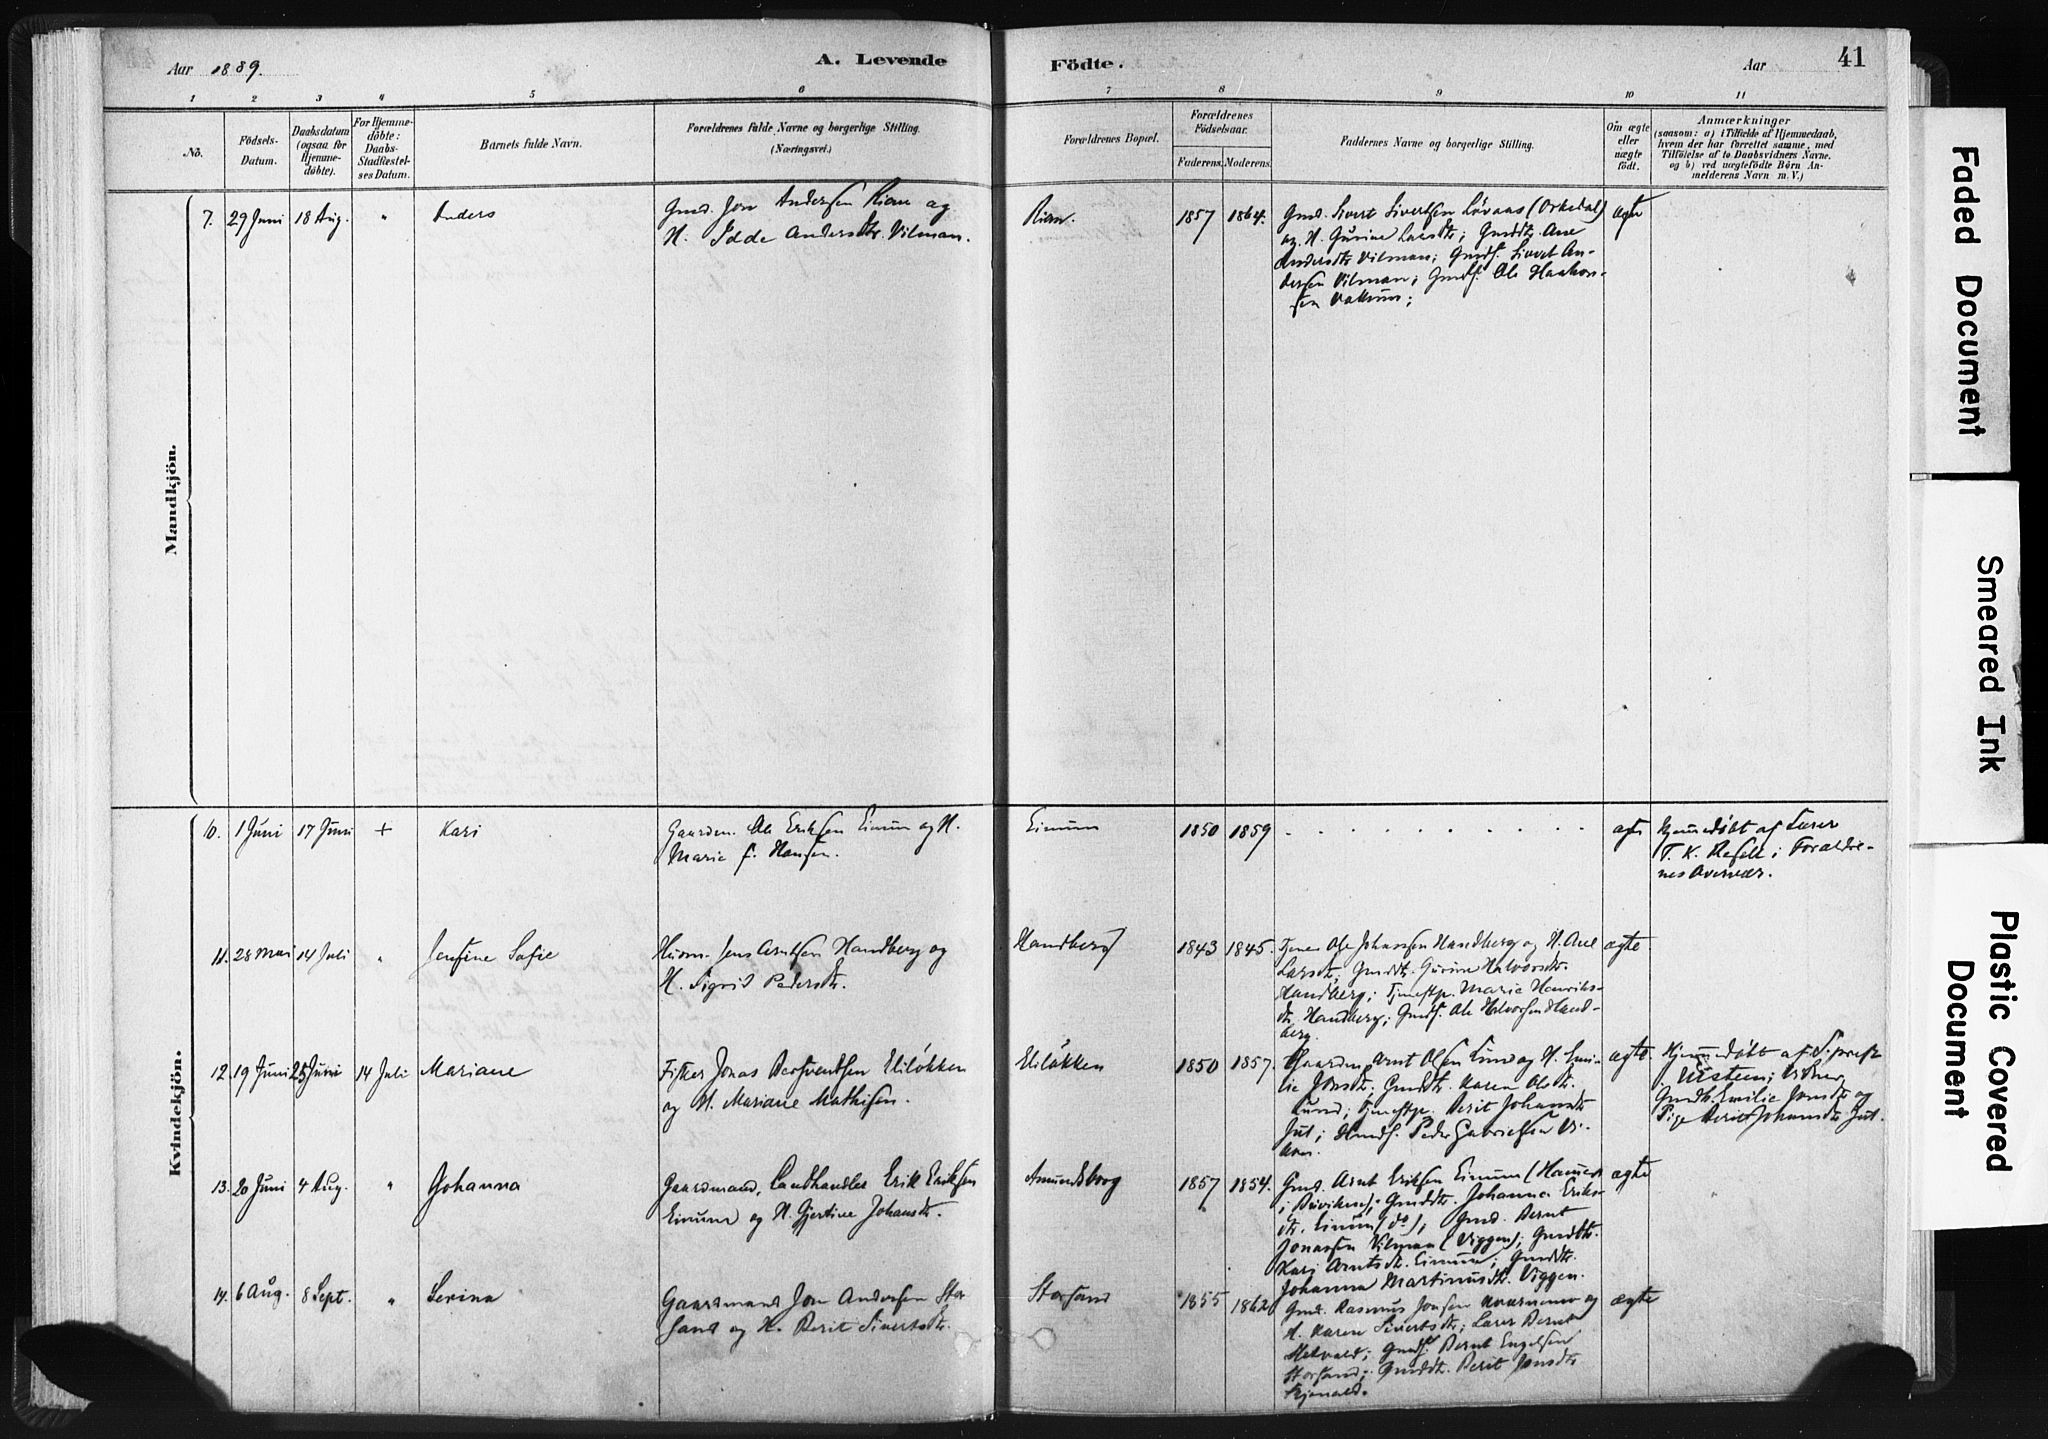 Aar 1889.
A. Levende
Födte.
Aar
41
1 2 3 4 5 6 7 8 9 10 11
No.
Födsels-
Datum.
Daabsdatum
(ogsaa for
Hjemme-
döbte).
For Hjemme-
döbte:
Daabs-
Stadfæstel-
ses Datum.
Barnets fulde Navn.
Forældrenes fulde Navne og borgerlige Stilling.
(Næringsvei.)
Forældrenes Bopæl.
Forældrenes
Födselsaar.
Faderens. Moderens.
Faddernes Navne og borgerlige Stilling.
Om ægte
eller
uægte
födt.
Anmærkninger
(saasom: a) i Tilfælde af Hjemmedaab,
hvem der har forrettet samme, med
Tilföielse af to Daabsvidners Navne.
og b) ved uægtefödte Börn An-
melderens Navn m. V.)
Mandkjön.
7. 29 Juni 18 Aug. " Anders
Gmd. Jon Andersen Rian og
H. Idde Andersdtr. Vilman.
Rian.
1857 1864.
Gmd. Sivert Sivertsen Lövaas (Orkedal)
og H. Gurine Larsdtr; Gmddtr. Ane
Andersdtr Vilman; Gmds. Sivert An-
dersen Vilman; Gmds. Ole Haakon-
sen
ægte
Kvindekjön.
10. 1 Juni 17 Juni + Kari
Gaardm. Ole Eriksen Eimun og H.
Marie f. Hansen.
Eimun
1850 1859
. . . . . . . . . .
ægte
Hjemmedöbt af Lærer
T. K. i Forældre-
nes Overvær.
11. 28 Mai 14 Juli " Jensine Sofie
Husm. Jens Arntsen Handberg og
H. Sigrid Pedersdtr.
Handberg
1843 1845.
Tjener Ole Johnsen Handberg og H. Ane
Larsdtr; Gmddtr. Gurine Halvorsdtr.
Handberg; Tjenestp. Marie Henriks-
dtr. Handberg; Gmds. Ole Halvorsen Hand-
berg.
ægte
12. 19 Juni 25 Juni 14 Juli Mariane
Fisker Jonas Bersventsen Eliløkken
og H. Mariane Mathisen.
Eliløkken
1850 1857.
Gaardm. Arnt Olsen Lund og H. Emi-
lie Jonsdtr. Gmddtr. Karen Olsdtr.
Lund; Tjenestp. Berit Johansdtr
Jut; Peder Gabrielsen
ægte
Hjemmedöbt af S. prest
Vidner,
Emilie Jonsdtr og
Pige Berit Johansdtr Jut.
13. 20 Juni 4 Aug. " Johanna
Gaardmand, Landhandler Erik Eriksen
Eimun og H. Gjertine Johansdtr.
Amundsborg
1857 1854.
Gmd. Arnt Eriksen Eimun (Hammer
i Buviken); Gmddtr. Johanna Eriks-
dtr. Eimun (do); Gmd. Bernt
Jonassen Vilman (Viggen); Gmddtr.
Kari Arntsdtr. Eimun; Gmddtr.
Johanna Martinusdtr. Viggen.
ægte
14. 6 Aug. 8 Sept. " Serina
Gaardmand Jon Andersen Stor-
sand og H. Berit Sivertsdtr.
Storsand
1855 1862
Gmd. Rasmus Jonsen og
H. Karen Sivertsdtr; Lærer Bernt
Gmds. Bernt Engelsen
Storsand; Gmddtr. Berit Jonsdtr
ægte
Faded Document
Smeared Ink
Plastic Covered
Document